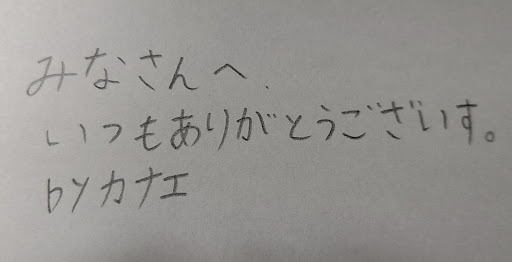 みなさんへ.
いつもありがとうございす。
byカナエ